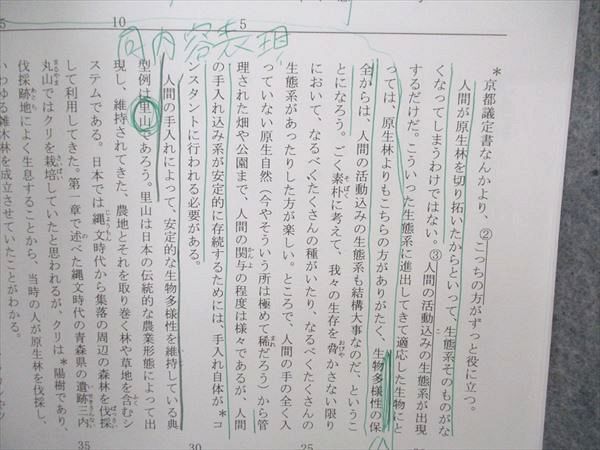 5
10
同内容表現
*京都議定書なんかより、②こっちの方がずっと役に立つ。
人間が原生林を切り拓いたからといって、生態系そのものがな
くなってしまうわけではない。③人間の活動込みの生態系が出現
するだけだ。こういった生態系に進出してきて適応した生物にと
っては、原生林よりもこちらの方がありがたく、生物多様性の保
全からは、人間の活動込みの生態系も結構大事なのだ、というこ
とになろう。ごく素朴に考えて、我々の生存を脅かさない限り
において、なるべくたくさんの種がいたり、なるべくたくさんの
生態系があったりした方が楽しい。ところで、人間の手の全く入
っていない原生自然（今やそういう所は極めて稀だろう）から管
理された畑や公園まで、人間の関与の程度は様々であるが、人間
の手入れ込み系が安定的に存続するためには、手入れ自体が*コ
ンスタントに行われる必要がある。
人間の手入れによって、安定的な生物多様性を維持している典
型例は里山であろう。里山は日本の伝統的な農業形態によって出
現し、維持されてきた、農地とそれを取り巻く林や草地を含むシ
ステムである。日本では縄文時代から集落の周辺の森林を伐採
して利用してきた。第一章で述べた縄文時代の青森県の遺跡三内
丸山ではクリを栽培していたと思われるが、クリは*陽樹であり、
伐採跡地によく生息することから、当時の人が原生林を伐採し、
いわゆる雑木林を成立させていたことがわかる。
30
35